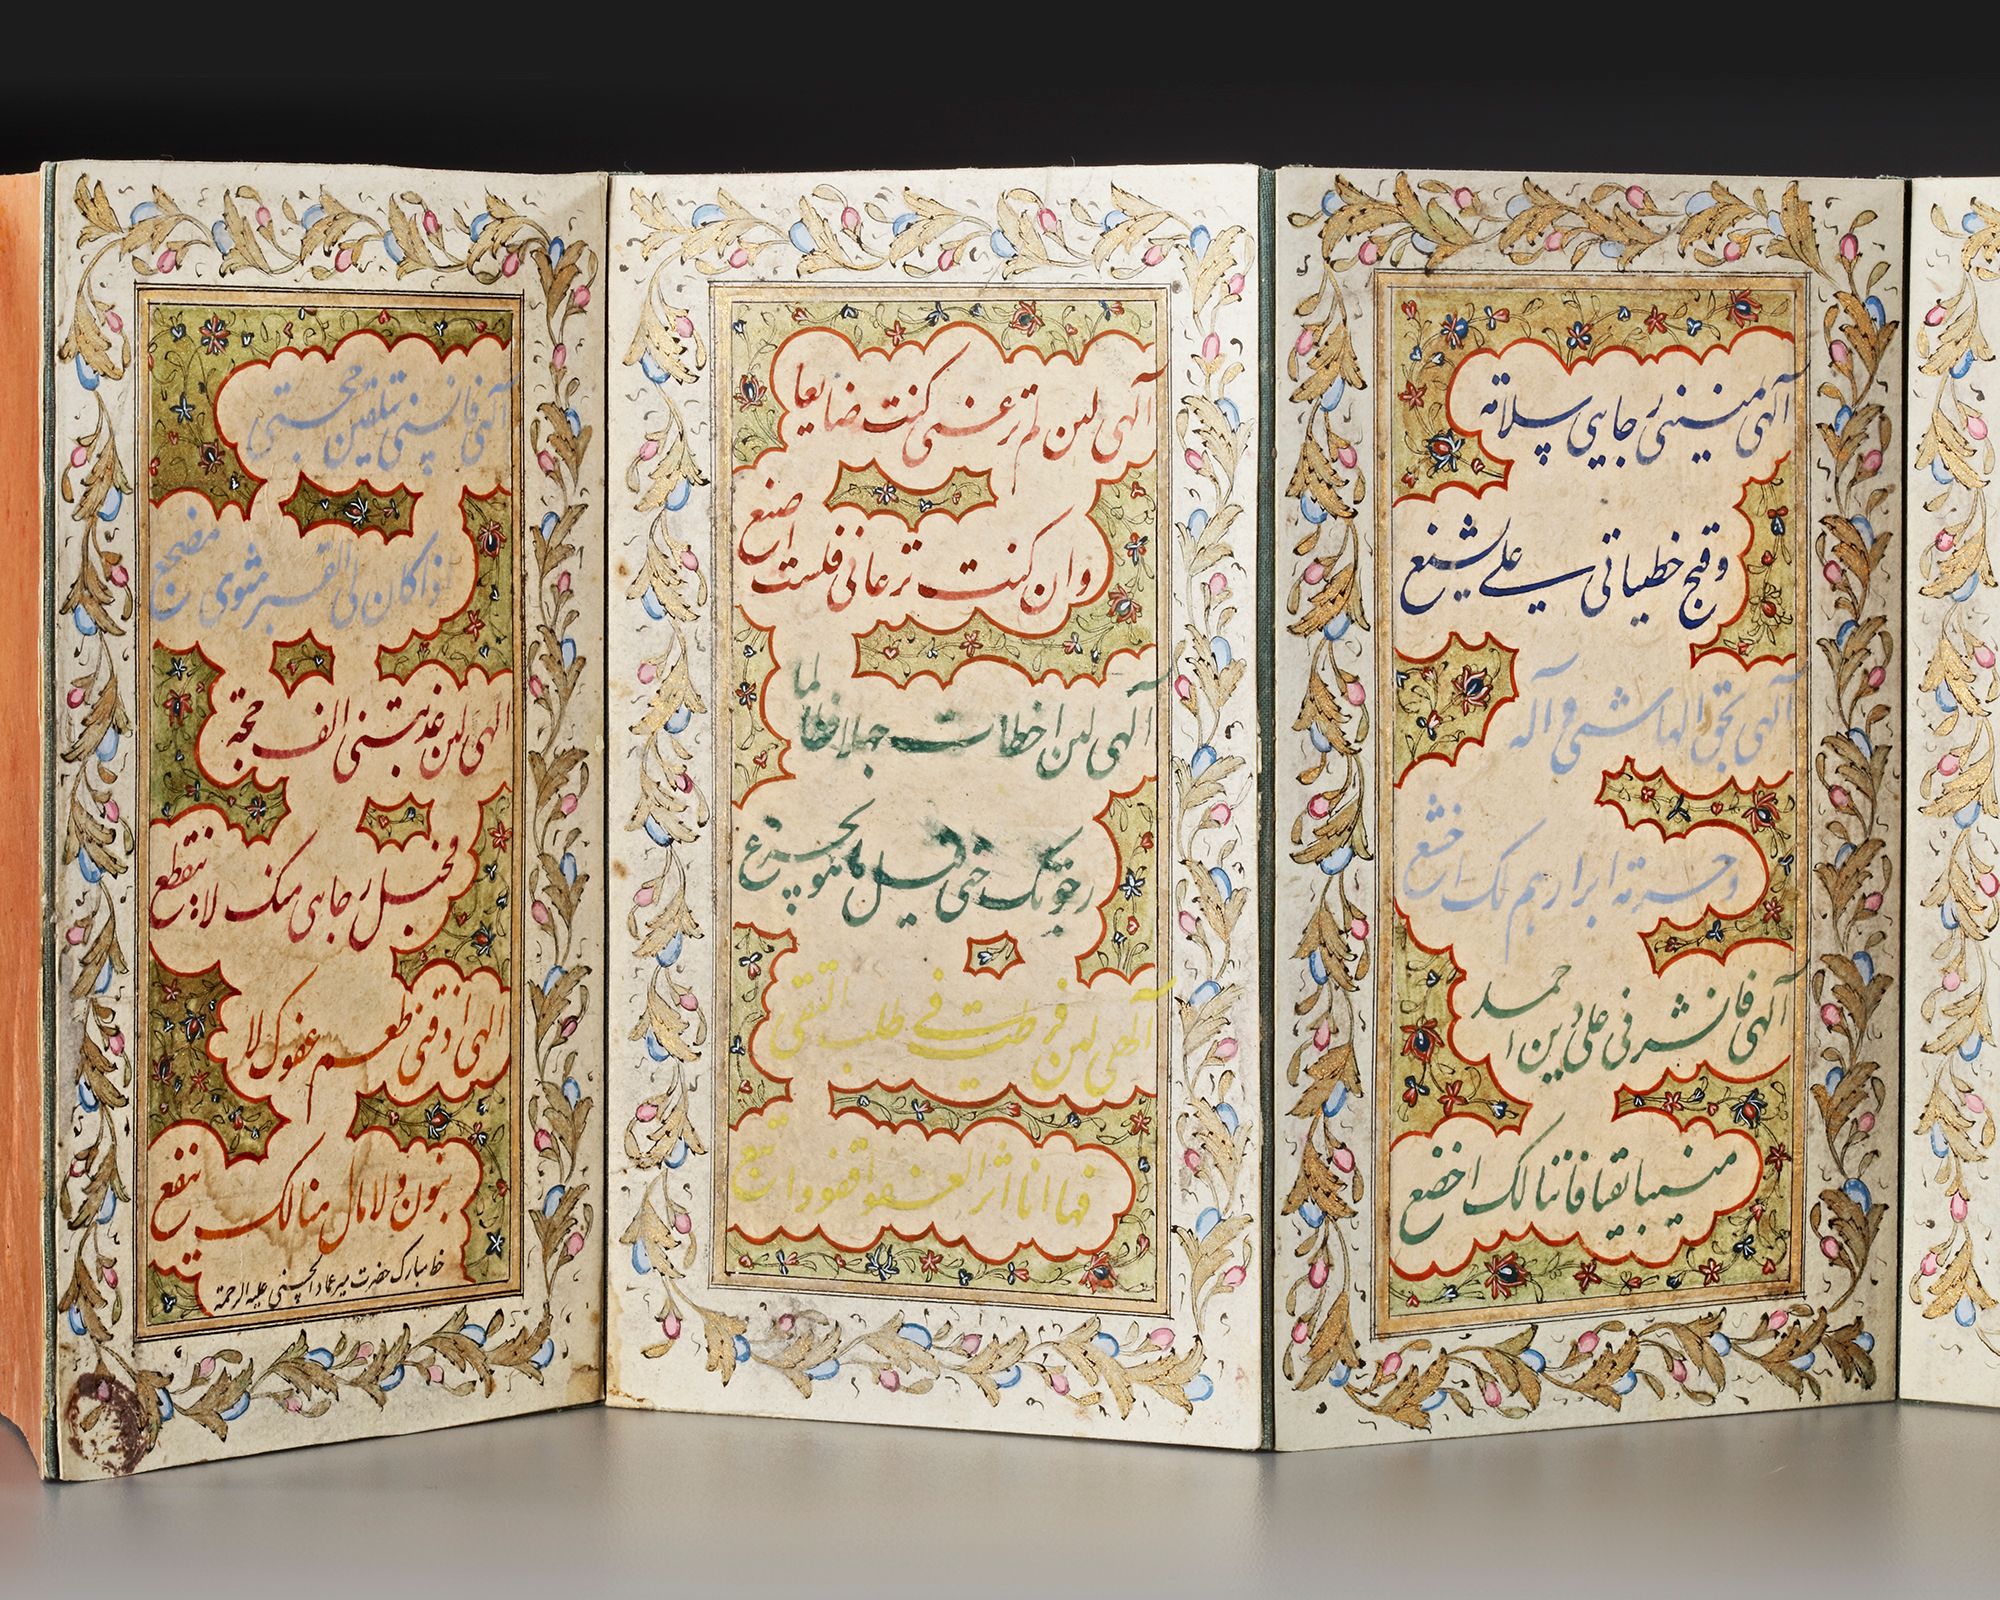 الهی فانسنی بتلقین حجتی
اذا کان لی القبر مثوی مضجع
الهی لئن عذبتنی الف حجة
فحبل رجایی منک لا یتقطع
الهی اذقنی طعم عفوک لا
بنون ولا مال هنالک ینفع
خط مبارک حضرت میر عماد الحسنی علیه الرحمة
الهی لئن لم ترعنی کنت ضایعا
وان کنت ترعانی فلست اضیع
الهی لئن اخطات جهلا فطالما
رجوتک حتی قیل ما هو یجزع
الهی لئن فرطت فی طلب التقی
فها انا اثر العفو اقفو واتبع
الهی ینجینی رجایی سلامة
وقبح خطیاتی علی یشنع
الهی بحق الهاشمی و آله
وحرمة ابرار هم لک خشع
الهی فانشرنی علی دین احمد
منیبا تقیا قانتا لک اخضع